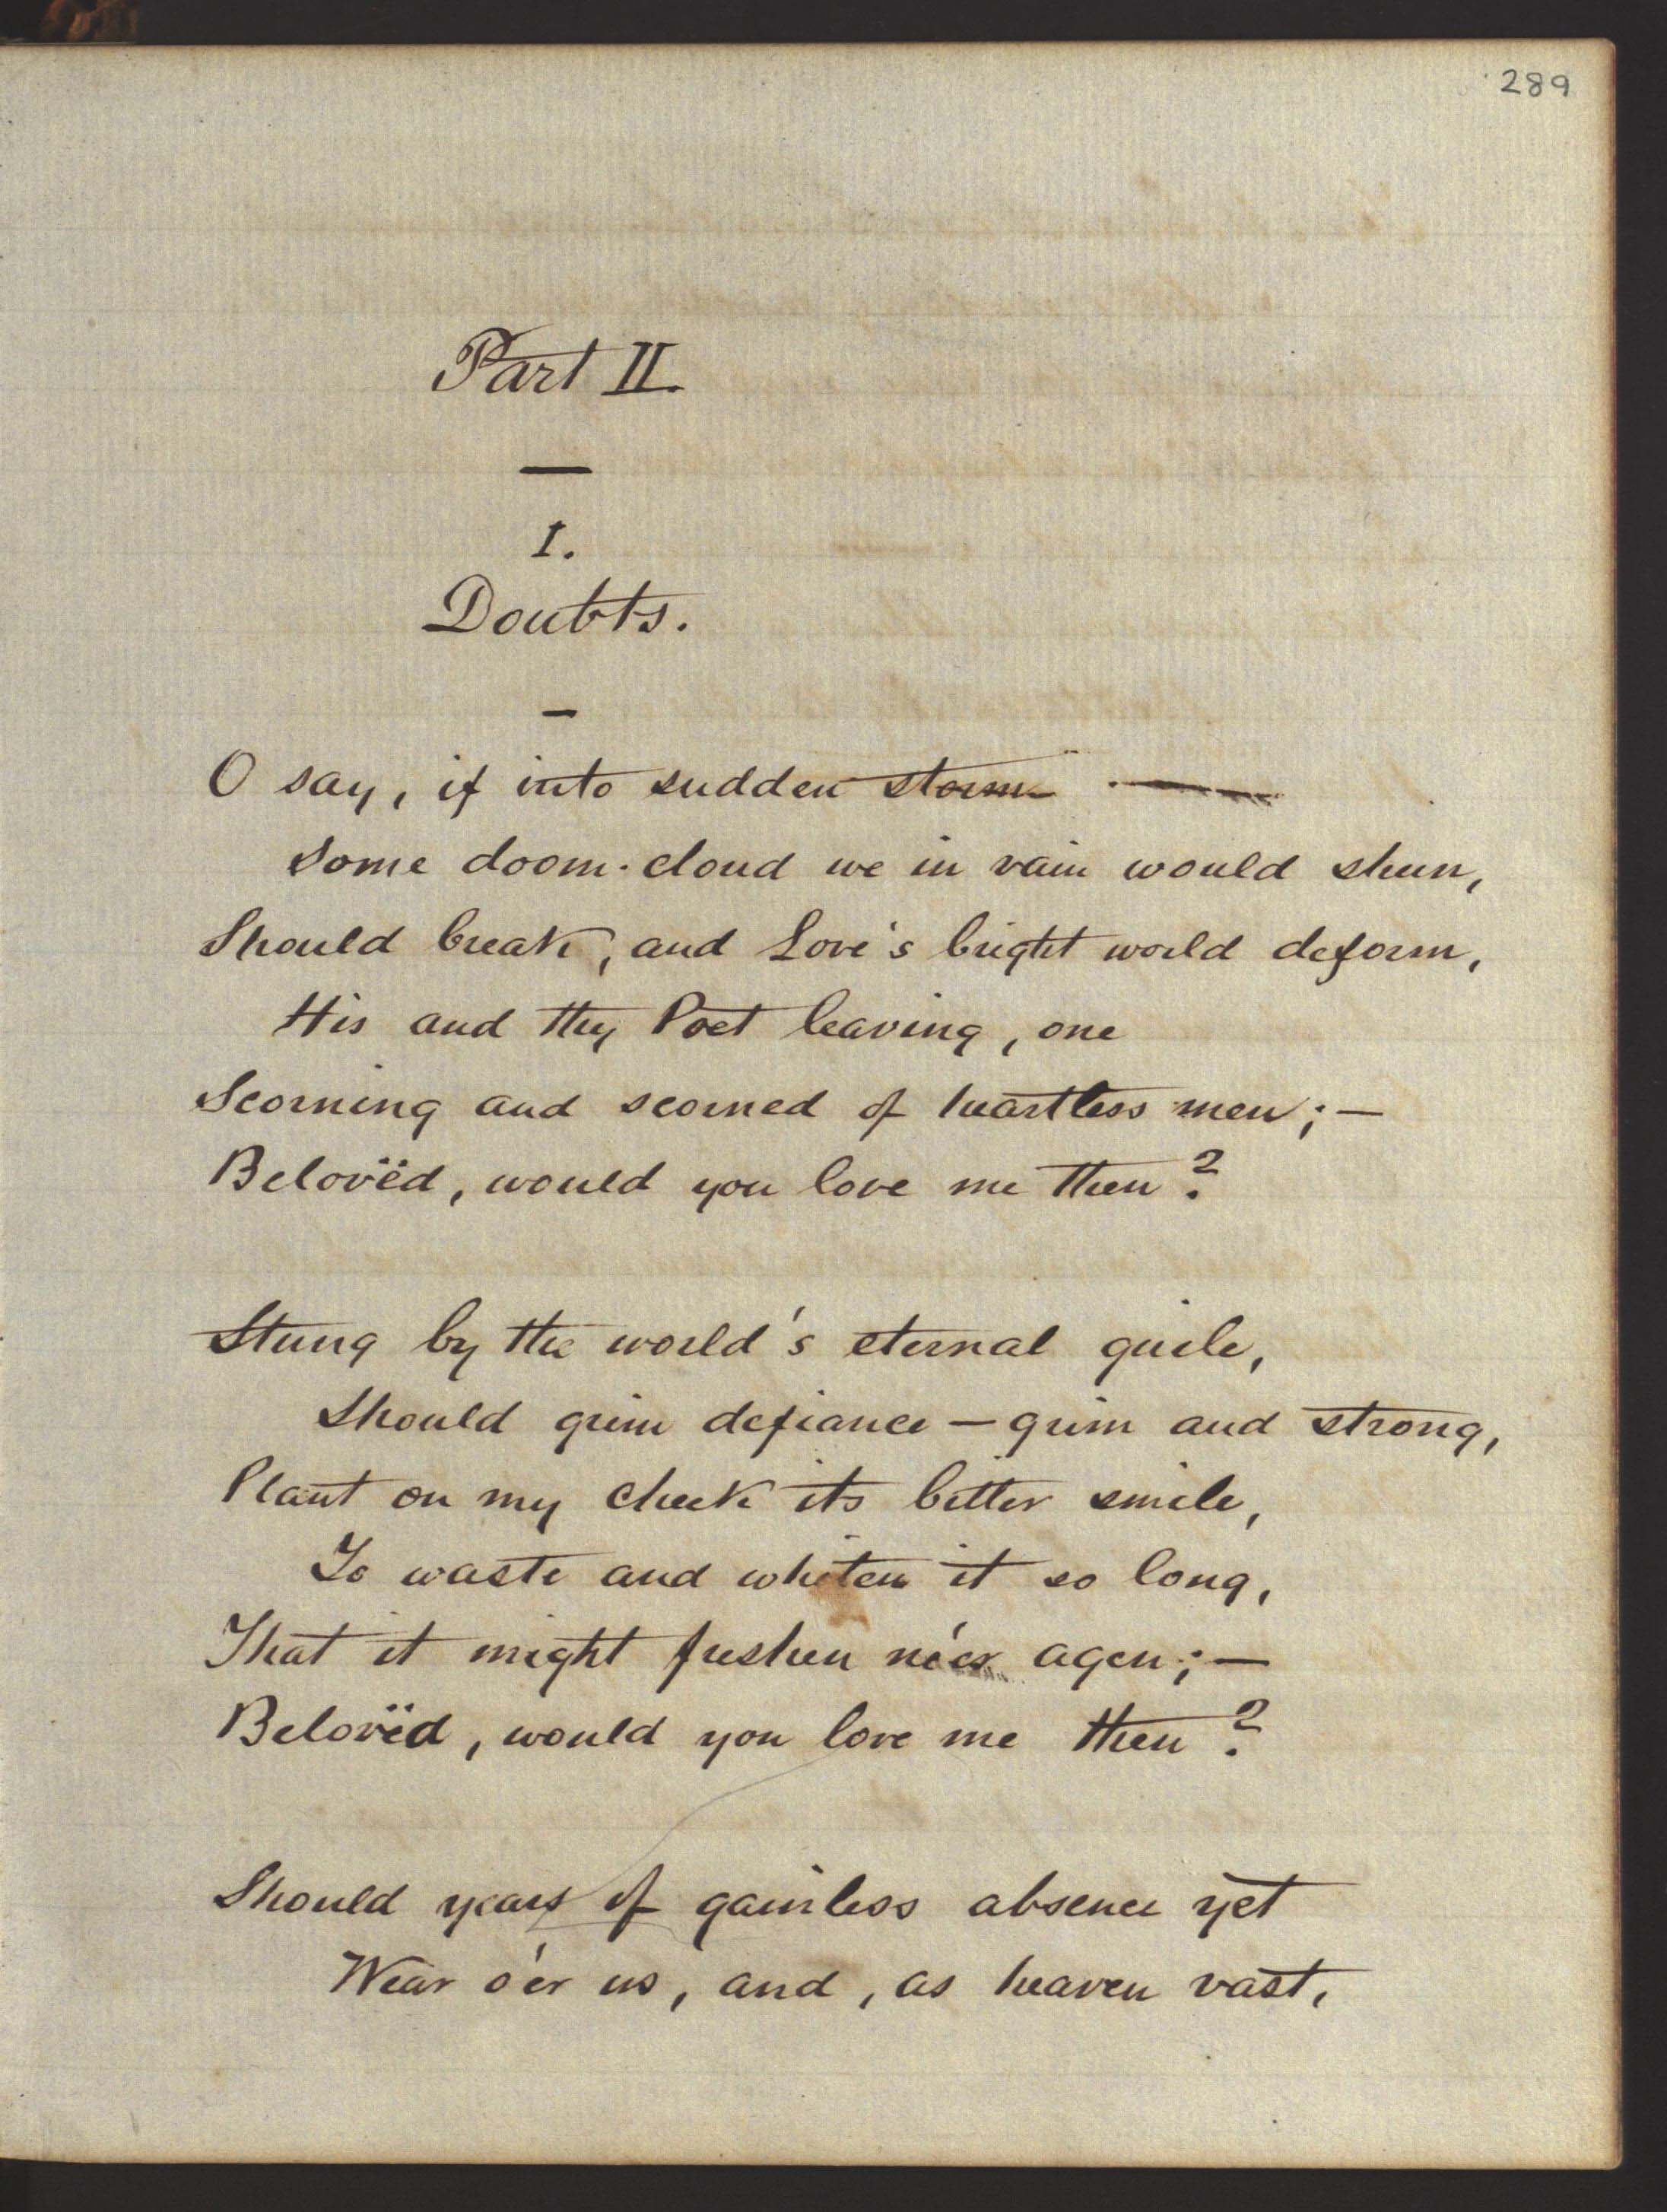 289
Part II.
—
I.
Doubts.
—
O say, if into sudden storm —
Some doom-cloud we in vain would shun,
Should break, and Love's bright world deform,
His and thy Poet leaving, one
Scorning and scorned of heartless men; —
Belovëd, would you love me then?
Stung by the world's eternal guile,
Should grim defiance — grim and strong,
Plant on my cheek its bitter smile,
To waste and whiten it so long,
That it might freshen ne'er agen; —
Belovëd, would you love me then?
Should years of gainless absence yet
Wear o'er us, and, as heaven vast,